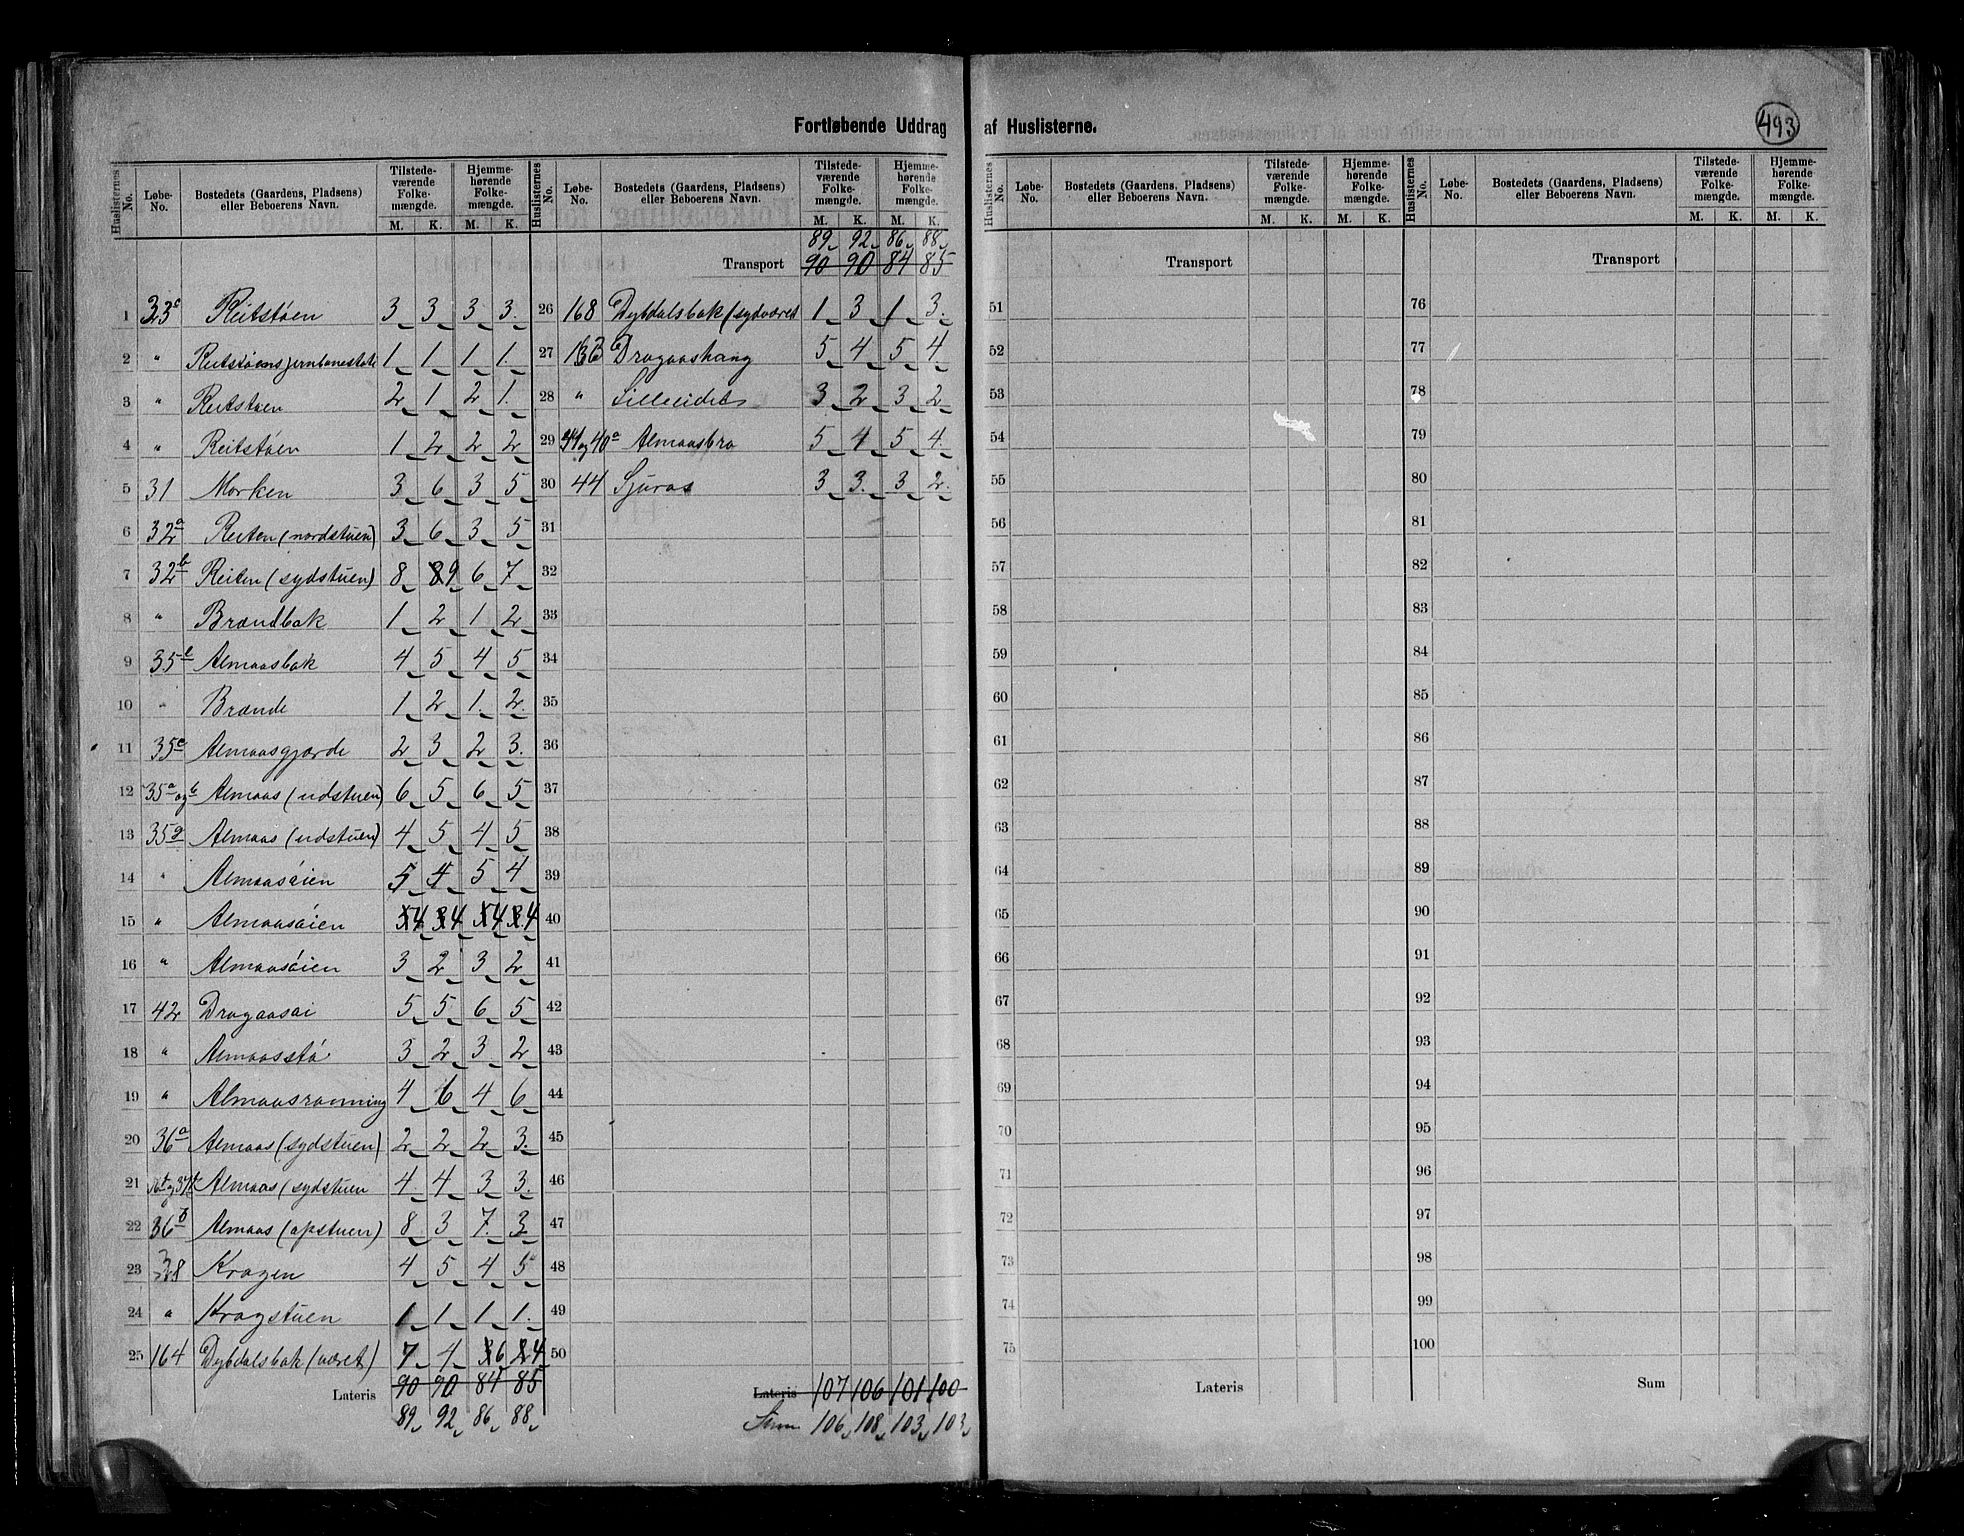 Fortløbende Uddrag af Huslisterne.
493
Huslisternes No. | Løbe-No. | Bostedets (Gaardens, Pladsens) eller Beboerens Navn. | Tilstedeværende Folkemængde. M. K. | Hjemmehørende Folkemængde. M. K.
1 33c Reitstøen 3 3 3 3
2 " Reitstøens jernbanestat 1 1 1 1
3 " Reitstøen 2 1 2 1
4 " Reitstøen 1 2 2 2
5 31 Morken 3 6 3 5
6 32a Reiten (nordstuen) 3 6 3 5
7 32b Reiten (sydstuen) 8 9 6 7
8 " Brændbak 1 2 1 2
9 35 Almaasbak 4 5 4 5
10 " Brænde 1 2 1 2
11 35c Almaasgjærde 2 3 2 3
12 35a og b Almaas (udstuen) 6 5 6 5
13 35 Almaas (udstuen) 4 5 4 5
14 " Almaasøien 5 4 5 4
15 " Almaasøien 4 4 4 4
16 " Almaasøien 3 2 3 2
17 42 Dragaasøi 5 5 6 5
18 " Almaasstø 3 2 3 2
19 " Almaasrønning 4 6 4 6
20 36a Almaas (sydstuen) 2 2 2 3
21 Almaas (sydstuen 4 4 3 3
22 36b Almaas (opstuen) 8 3 7 3
23 38 Kragen 4 5 4 5
24 " Kragstuen 1 1 1 1
25 164 Dybdalsbak (været) 7 4 6 4
Lateris 90 90 84 85
89 92 86 88
Huslisternes No. | Løbe-No. | Bostedets (Gaardens, Pladsens) eller Beboerens Navn. | Tilstedeværende Folkemængde. M. K. | Hjemmehørende Folkemængde. M. K.
89 92 86 88
Transport 90 90 84 85
26 168 Dybdalsbak (sydværet 1 3 1 3
27 Dragaashaug 5 4 5 4
28 " Lilleeidet 3 2 3 2
29 41 og 40a Almaasbro 5 4 5 4
30 44 Sjuraas 3 3 3 2
31
32
33
34
35
36
37
38
39
40
41
42
43
44
45
46
47
48
49
50
Lateris 107 106 101 100
Sum 106 108 103 103
Huslisternes No. | Løbe-No. | Bostedets (Gaardens, Pladsens) eller Beboerens Navn. | Tilstedeværende Folkemængde. M. K. | Hjemmehørende Folkemængde. M. K.
Transport
51
52
53
54
55
56
57
58
59
60
61
62
63
64
65
66
67
68
69
70
71
72
73
74
75
Lateris
Huslisternes No. | Løbe-No. | Bostedets (Gaardens, Pladsens) eller Beboerens Navn. | Tilstedeværende Folkemængde. M. K. | Hjemmehørende Folkemængde. M. K.
Transport
76
77
78
79
80
81
82
83
84
85
86
87
88
89
90
91
92
93
94
95
96
97
98
99
100
Sum